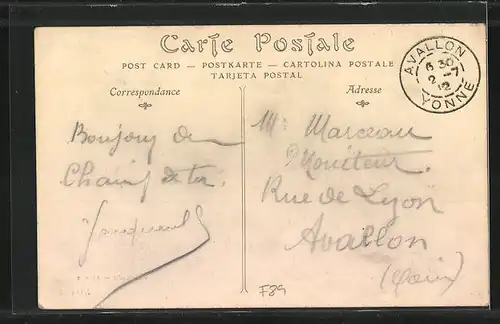 Carte Postale
POST CARD — POSTKARTE — CARTOLINA POSTALE
TARJETA POSTAL
Correspondance
Adresse
AVALLON
6 30
2 - 7
12
YONNE
Bonjour du
Champ de tir.
Mr Marceau
Moniteur
Rue de Lyon
Avallon
F89